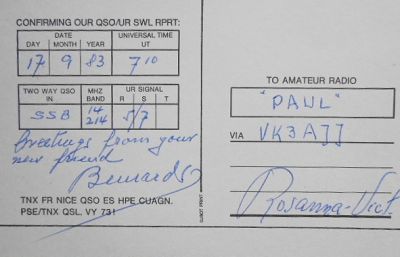 CONFIRMING OUR QSO/UR SWL RPRT:
DATE UNIVERSAL TIME
DAY MONTH YEAR UT
17 9 83 7 10
TWO WAY QSO MHZ UR SIGNAL
IN BAND R S T
SSB 14 5/7
214
Greetings from your
new friend
Bernard
TNX FR NICE QSO ES HPE CUAGN.
PSE/TNX QSL. VY 73!
TO AMATEUR RADIO
"PAUL"
VIA VK3AJJ
Rosanna-Vict.